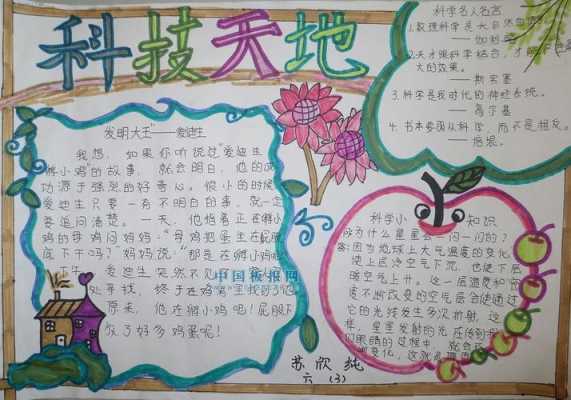 科技天地
发明大王"——爱迪生
我想，如果你听说过"爱迪生
孵小鸡"的故事，就会明白，他的成
功源于强烈的好奇心。很小的时候
爱迪生只要一有不明白的事，就一定
要追问清楚。一天，他指着正在孵小
鸡的母鸡问妈妈："母鸡把蛋坐在屁股
底下干吗？"妈妈说："那是在孵小鸡
爱迪生突然不见
处寻找，终于在鸡窝里找到了他
原来，他在孵小鸡吧！屁股下
放了好多鸡蛋呢！
中国板报网
科学名人名言
1.数理科学是大自然
——伽利略
2.天才跟科学结合，才能
大的效果。
——斯宾塞
3.科学是我时代的神经系统。
——高尔基
4.书本要面从科学，而不是相反。
——培根。
科学小知识
为什么星星会一闪一闪的？
答:因为地球上大气温度的变化
使上层冷空气下沉，也使下层
暖空气上升。这一层温度和密
度不断改变的空气层会使通过
它的光线发生多次折射，这
样，星星发射的光在传到
们眼睛的过程中，就会
变化，这就
苏欣纯
六（3）